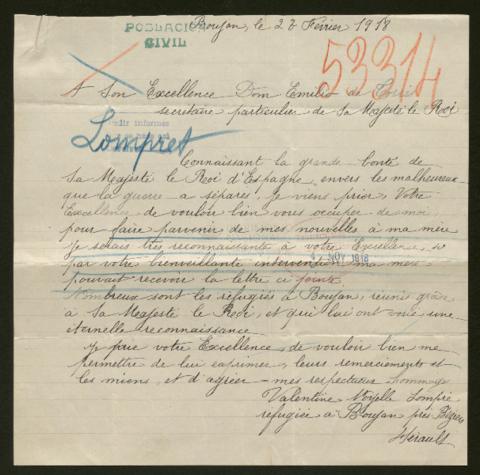 POBLACION
CIVIL
Boujan, le 22 Février 1918
53314
A Son Excellence Dom Emilio de
secrétaire particulier de Sa Majesté le Roi
Pedir informes
Lompret
Connaissant la grande bonté de
Sa Majesté le Roi d'Espagne, envers les malheureux
que la guerre a séparés, je viens prier Votre
Excellence de vouloir bien vous occuper de moi
pour faire parvenir de mes nouvelles à ma mère
Je serais très reconnaissante à votre Excellence, si
par votre bienveillante intervention ma mère
NOV 1918
pouvait recevoir la lettre ci jointe
Nombreux sont les réfugiés à Boujan, réunis grâce
à Sa Majesté le Roi, et qui lui ont voué une
éternelle reconnaissance
Je prie votre Excellence, de vouloir bien me
permettre de lui exprimer, leurs remerciements et
les miens, et d'agréer mes respectueux hommages
Valentine Lompré
réfugiée à Boujan près Béziers
Hérault